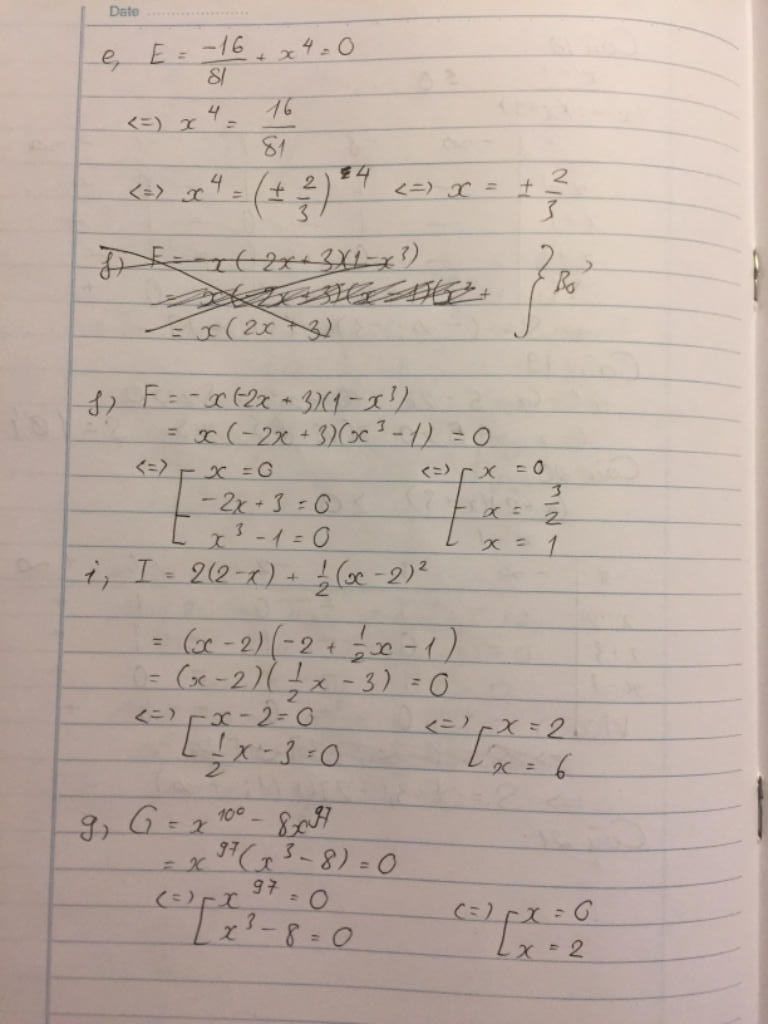 Date
e, E = -16/81 + x^4 = 0
<=> x^4 = 16/81
<=> x^4 = (± 2/3)^4 <=> x = ± 2/3
f) F = -x(-2x+3)(1-x^3)
= x(2x+3)
} Bỏ
f) F = -x(-2x+3)(1-x^3)
= x(-2x+3)(x^3-1) = 0
<=> [ x = 0 <=> [ x = 0
-2x+3 = 0 x = 3/2
x^3-1 = 0 x = 1
i, I = 2(2-x) + 1/2(x-2)^2
= (x-2)(-2 + 1/2x - 1)
= (x-2)(1/2x - 3) = 0
<=> [ x-2 = 0 <=> [ x = 2
1/2x - 3 = 0 x = 6
g, G = x^100 - 8x^97
= x^97(x^3-8) = 0
<=> [ x^97 = 0 <=> [ x = 0
x^3-8 = 0 x = 2